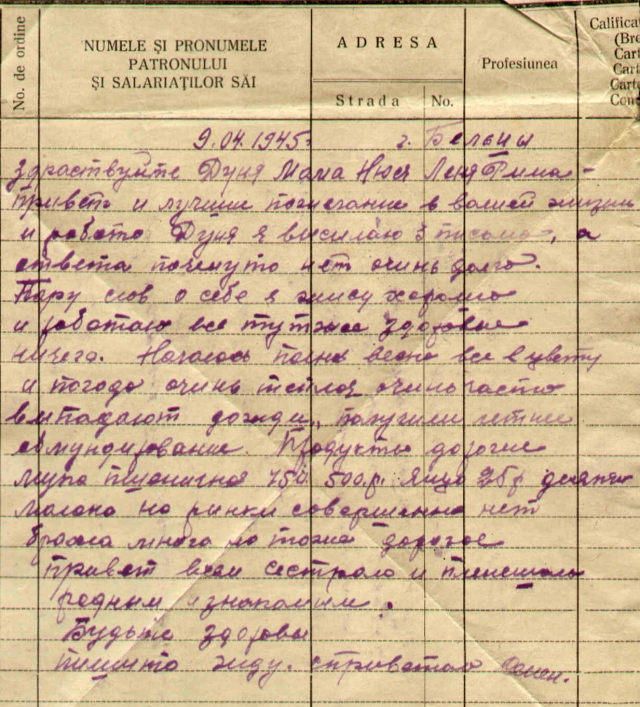 No. de ordine
NUMELE ȘI PRONUMELE
PATRONULUI
ȘI SALARIAȚILOR SĂI
ADRESA
Strada No.
Profesiunea
9.04.1945 г. Бельцы
Здраствуйте Дуня Мама Нюся Леня Рима -
привет и лучшие пожелание в вашей жизни
и работе Дуня я висилаю 3 письмо, а
ответа почемуто нет очинь долго.
Пару слов о себе я живу хорошо
и работаю все тутже здоровье
ничего. Началась полна весна все в цвету
и погода очинь теплоя очинь часто
випадают дожди, получили летнее
обмундирование. Продукты дорогие
мука пшенична 75к. 500р. яйцо 25р десяток
молока на ринки совершенно нет
много но тоже дорогое
привет всем сестрам и племяшам
родним изнакомим.
Будьте здорови
писмто жду. сприветом Семен.